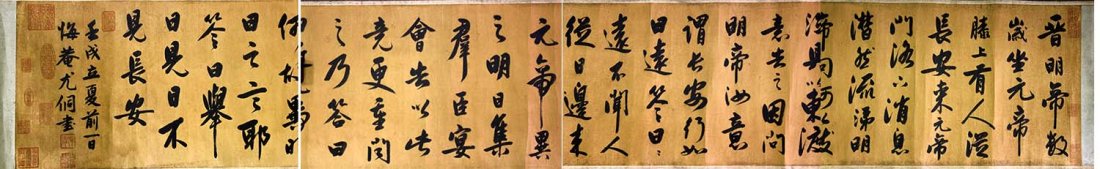 晋明帝數
歲坐元帝
膝上有人從
長安来元帝
问洛下消息
潸然流涕明
帝具以東渡
意告之因问
明帝汝意
謂長安何如
日遠答曰:
遠不聞人
從日邊来
元帝異
之明日集
羣臣宴
會告以此
意更重问
之乃答曰
何故異
日之言耶
答曰舉
目見日不
見長安
壬戌立夏前一日
悔菴尤侗書